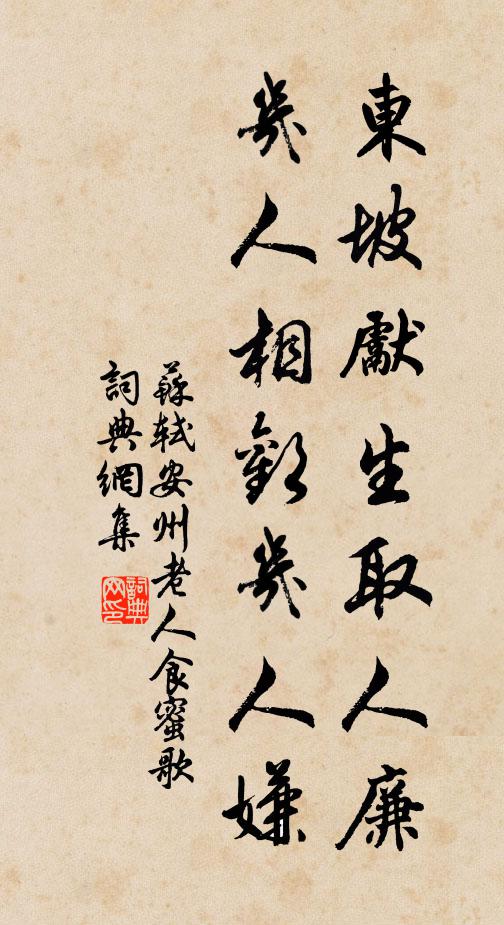 東坡獻生取人廉
幾人相歡幾人嫌
蘇軾安州老人食蜜歌
詞典網集
詞典网印